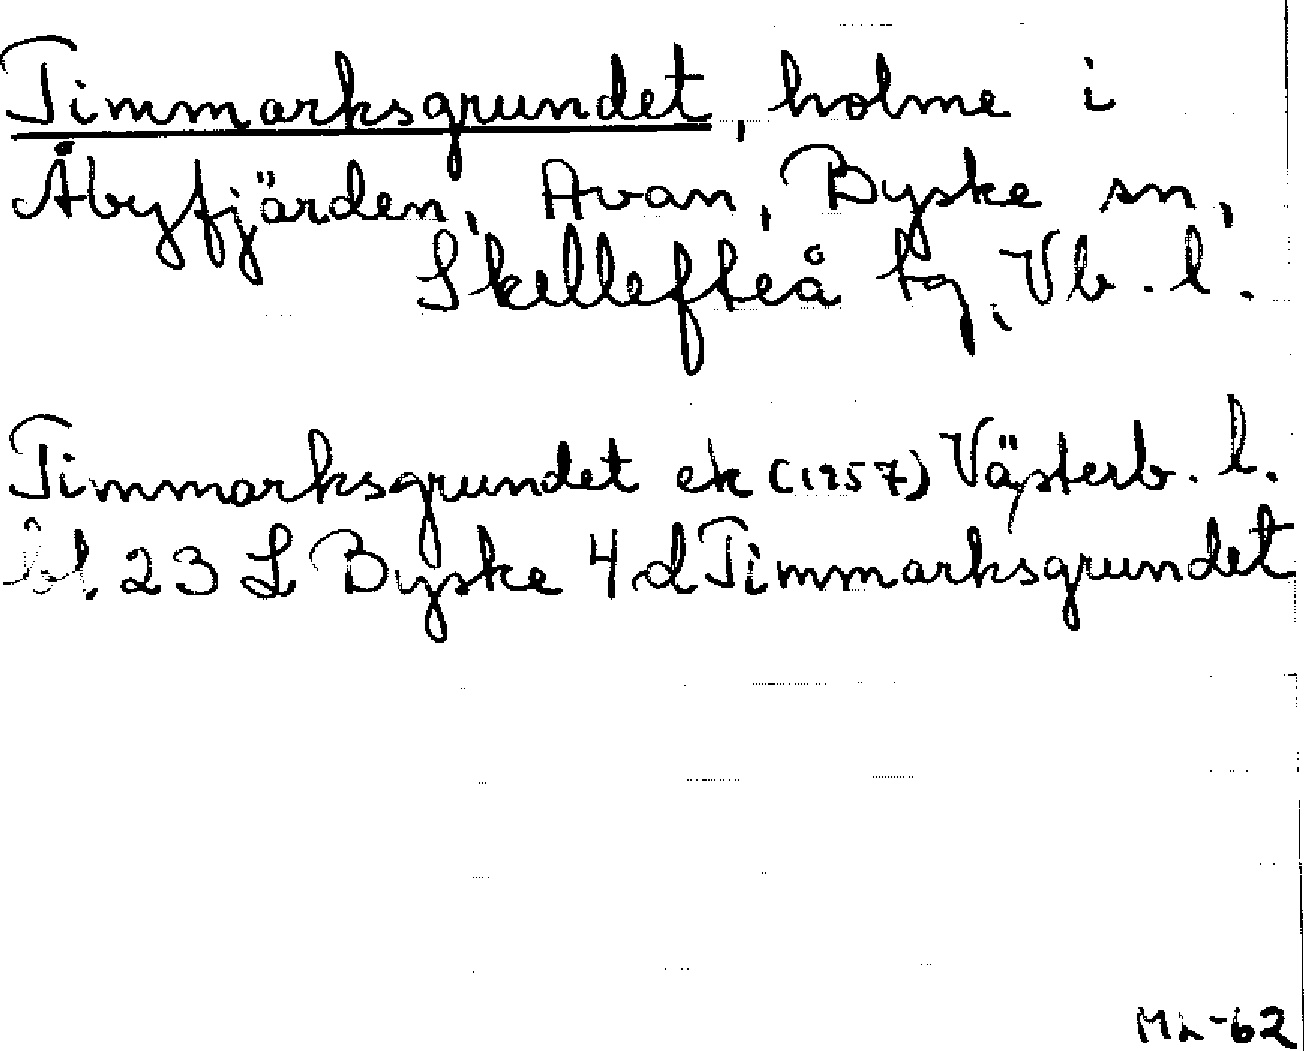 Timmarksgrundet, holme i
Åbyfjärden, Avan, Byske sn,
Skellefteå tg, Vb. l.
Timmarksgrundet ek (1957) Västerb. l.
bl. 23 L Byske 4 d Timmarksgrundet
ML-62